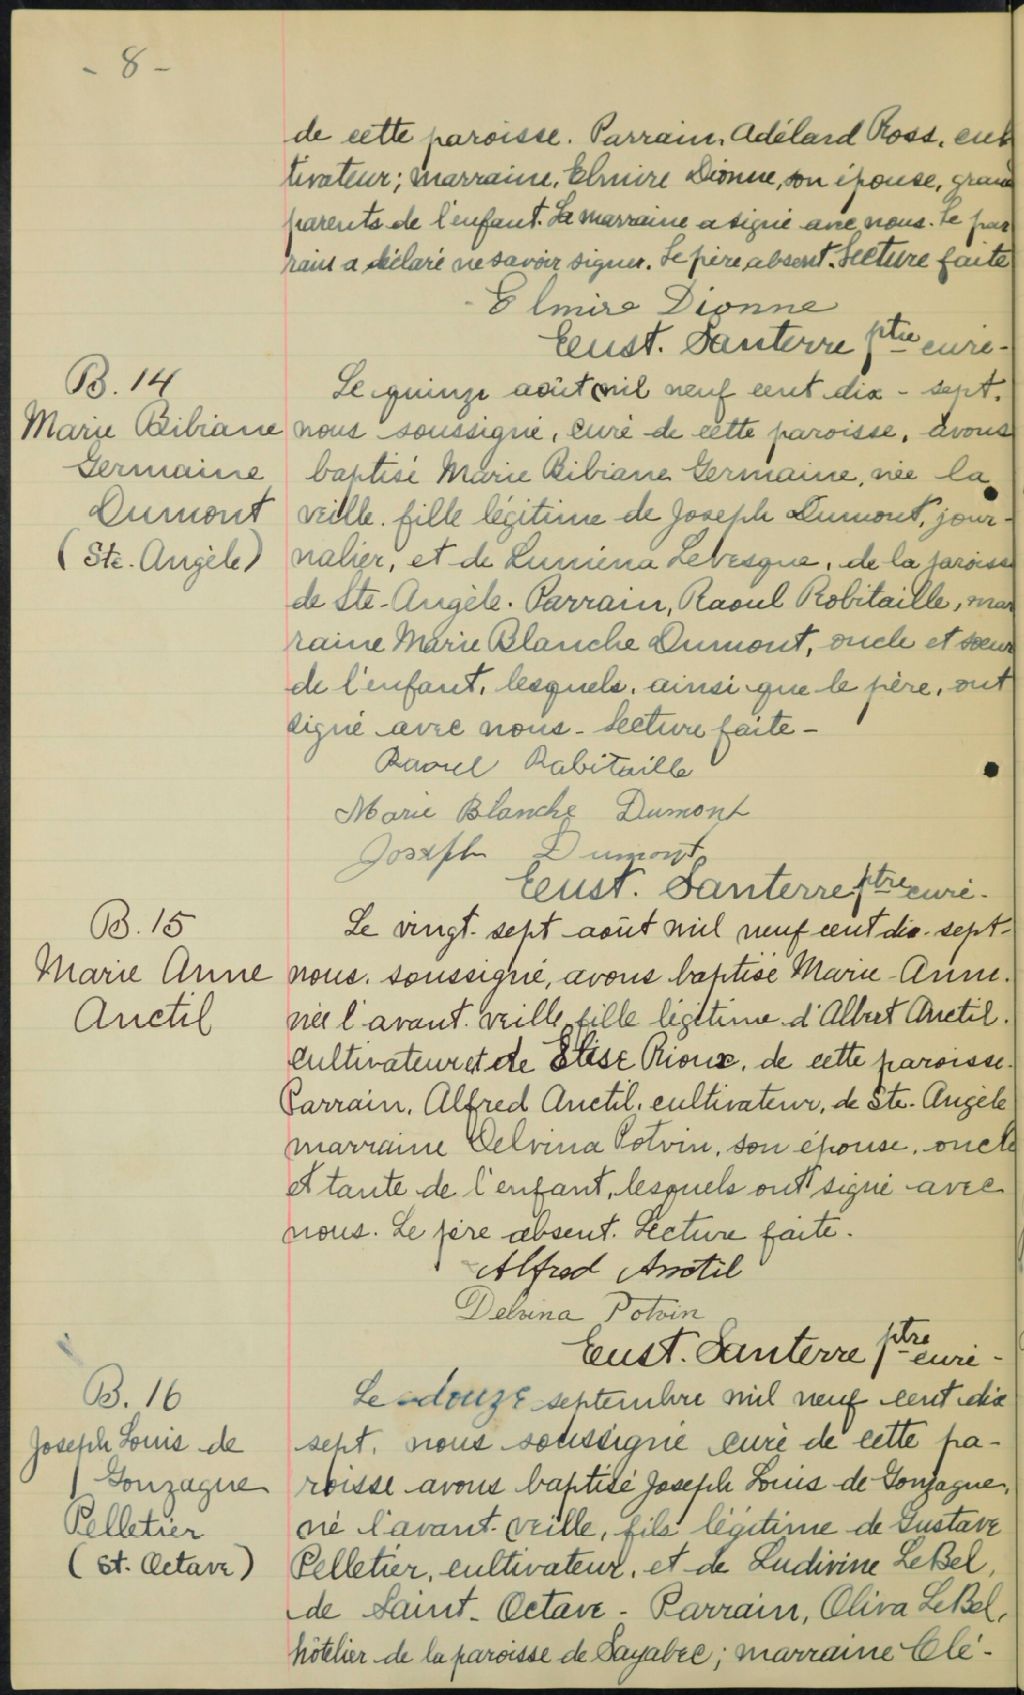 - 8 -
de cette paroisse. Parrain, Adélard Ross, cul
tivateur; marraine, Elmire Dionne, son épouse, grands
parents de l'enfant. La marraine a signé avec nous. Le par
rain a déclaré ne savoir signer. Le père absent. Lecture faite
Elmire Dionne
Eust. Santerre ptre curé -
B. 14
Marie Bibiane
Germaine
Dumont
(Ste. Angèle)
Le quinze août mil neuf cent dix - sept,
nous soussigné, curé de cette paroisse, avons
baptisé Marie Bibiane Germaine, née la
veille, fille légitime de Joseph Dumont, jour-
nalier, et de Luména Levesque, de la paroisse
de Ste-Angèle. Parrain, Raoul Robitaille, mar
raine Marie Blanche Dumont, oncle et soeur
de l'enfant, lesquels, ainsi que le père, ont
signé avec nous - Lecture faite -
Raoul Robitaille
Marie Blanche Dumont
Joseph Dumont
Eust. Santerre ptre curé -
B. 15
Marie Anne
Anctil
Le vingt-sept août mil neuf cent dix-sept-
nous, soussigné, avons baptisé Marie-Anne,
née l'avant-veille, fille légitime d'Albert Anctil,
cultivateur et de Elise Rioux, de cette paroisse.
Parrain, Alfred Anctil, cultivateur, de Ste-Angèle
marraine Delvina Potvin, son épouse, oncle
et tante de l'enfant, lesquels ont signé avec
nous. Le père absent. Lecture faite.
Alfred Anctil
Delvina Potvin
Eust. Santerre ptre curé -
B. 16
Joseph Louis de
Gonzague
Pelletier
(St. Octave)
Le douze septembre mil neuf cent dix
sept, nous soussigné curé de cette pa-
roisse avons baptisé Joseph Louis de Gonzague,
né l'avant-veille, fils légitime de Gustave
Pelletier, cultivateur, et de Ludivine LeBel,
de Saint-Octave - Parrain, Oliva LeBel,
hôtelier de la paroisse de Sayabec; marraine Clé-